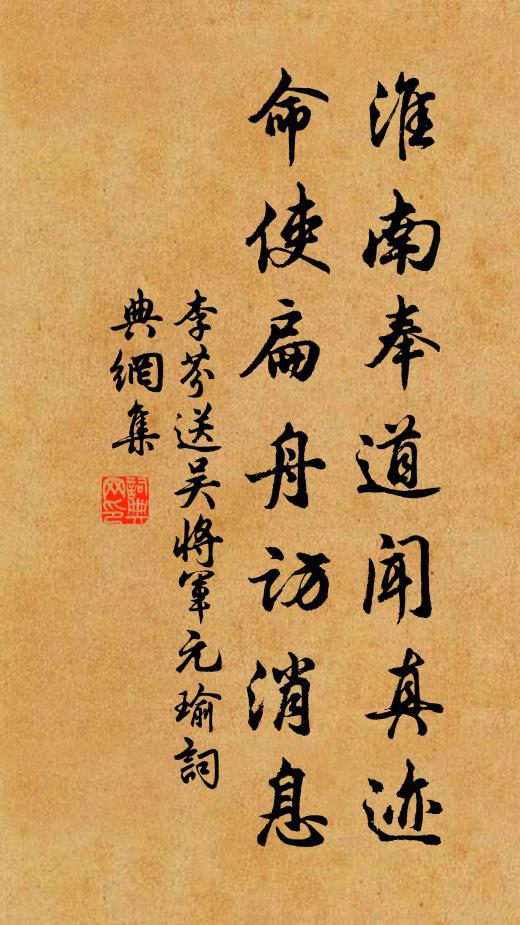 淮南奉道闻真迹
命使扁舟访消息
李芬送吴将军元瑜詞
典網集
詞典網印